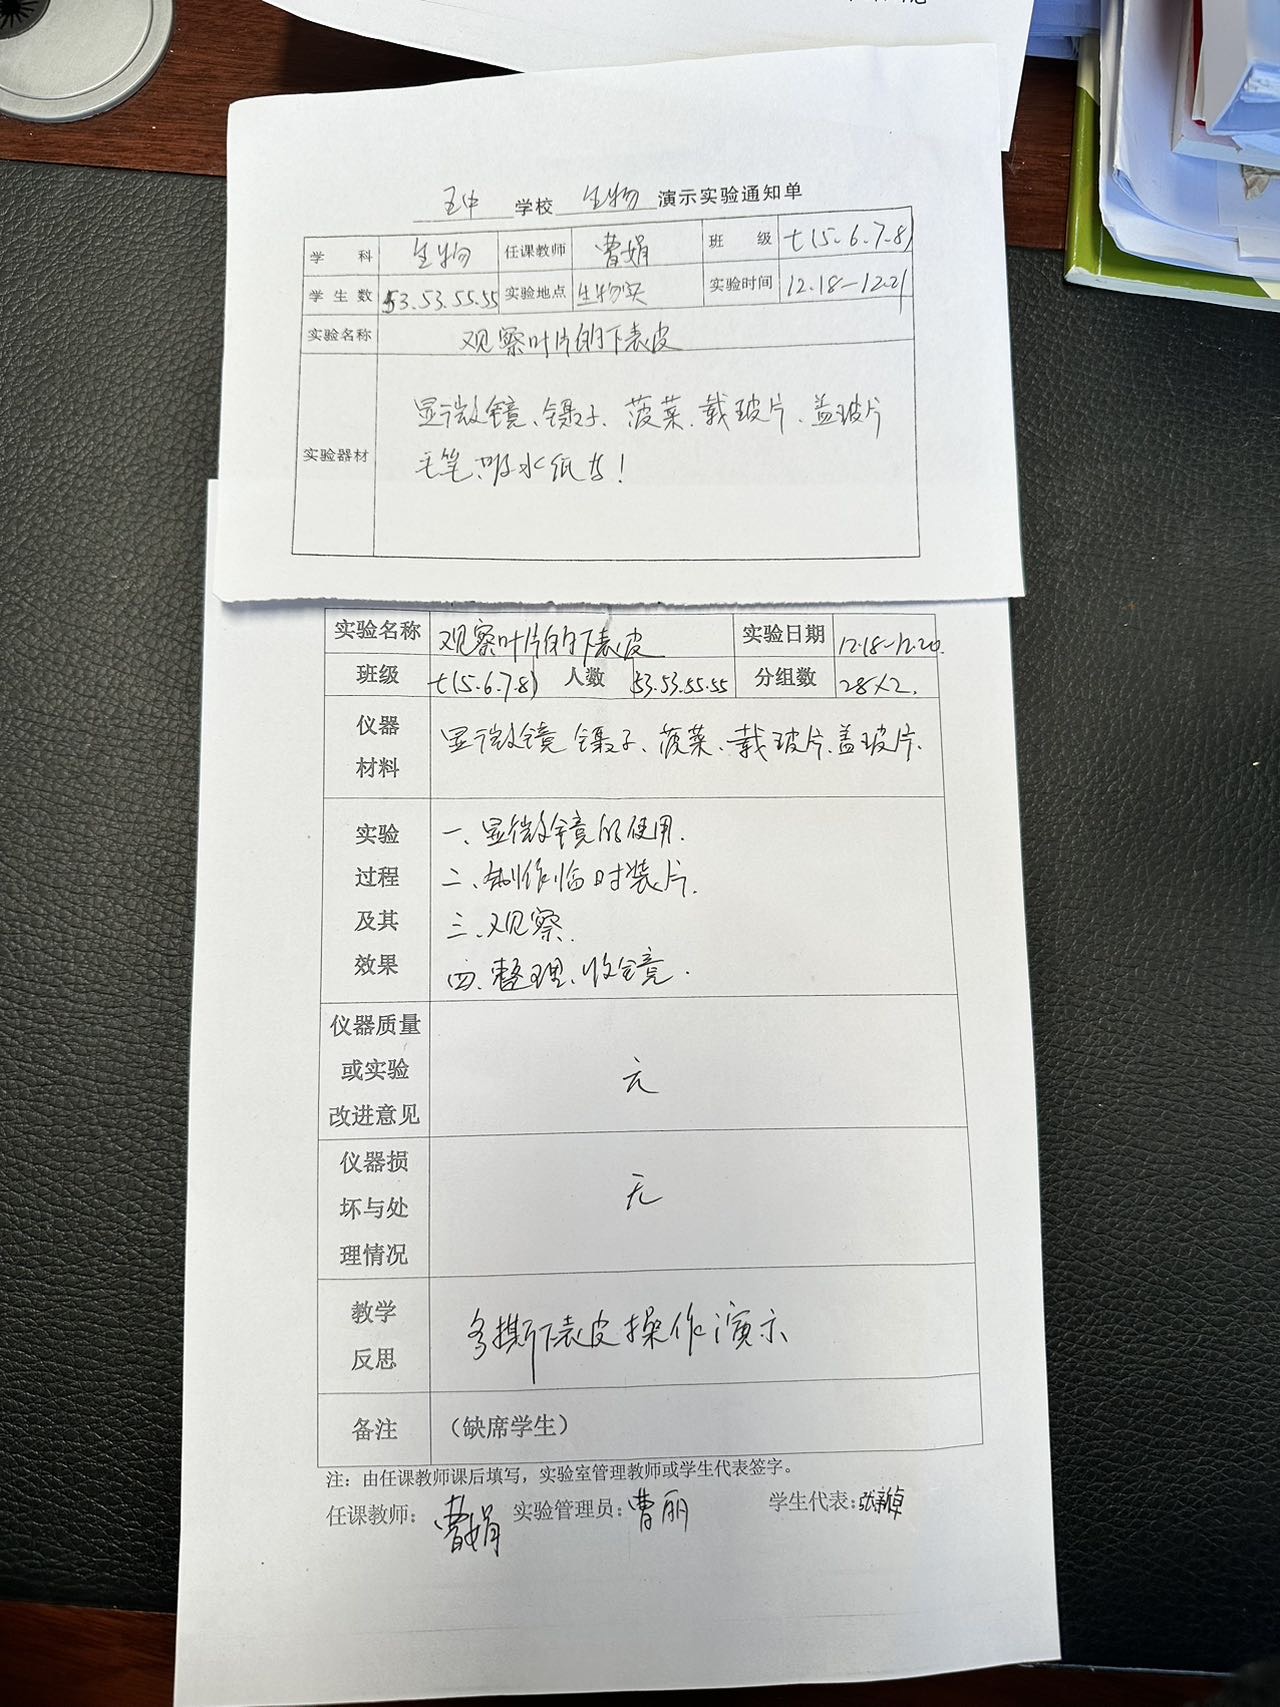 五中 学校 生物 演示实验通知单
学 科 生物 任课教师 曹娟 班 级 七(5.6.7.8)
学生数 53.53.55.55 实验地点 生物实 实验时间 12.18-12.21
实验名称 观察叶片的下表皮
实验器材
显微镜、镊子、菠菜、载玻片、盖玻片
毛笔、吸水纸等!
实验名称 观察叶片的下表皮 实验日期 12.18-12.20.
班级 七(5.6.7.8) 人数 53.53.55.55 分组数 28×2.
仪器
材料
显微镜 镊子、菠菜、载玻片、盖玻片.
实验 一、显微镜的使用.
过程 二、制作临时装片.
及其 三、观察.
效果 四、整理、收镜.
仪器质量
或实验 无
改进意见
仪器损
坏与处 无
理情况
教学
反思
多撕下表皮操作演示
备注 (缺席学生)
注:由任课教师课后填写,实验室管理教师或学生代表签字。
任课教师: 曹娟 实验管理员: 曹丽 学生代表: